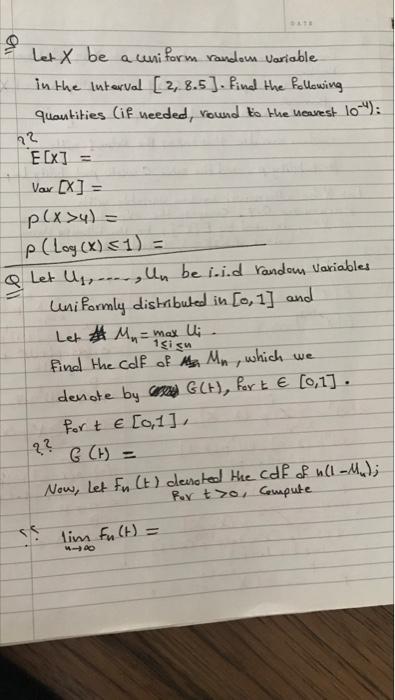 DATE
Q Let X be a uniform random variable
in the Interval [2, 8.5]. Find the Following
quantities (if needed, round to the nearest 10⁻⁴):
??
E[X] =
Var [X] =
p(X>4) =
p(Log(X) ≤ 1) =
Q Let U₁,----,Uₙ be i.i.d random variables
Uniformly distributed in [0,1] and
Let Mₙ = max Uᵢ.
1≤i≤n
Find the cdf of Mₙ, which we
denote by G(t), for t ∈ [0,1].
For t ∈ [0,1],
?? G (t) =
Now, Let Fₙ (t) denoted the cdf of n(1-Mₙ);
For t>0, Compute
?? lim Fₙ(t) =
n→∞